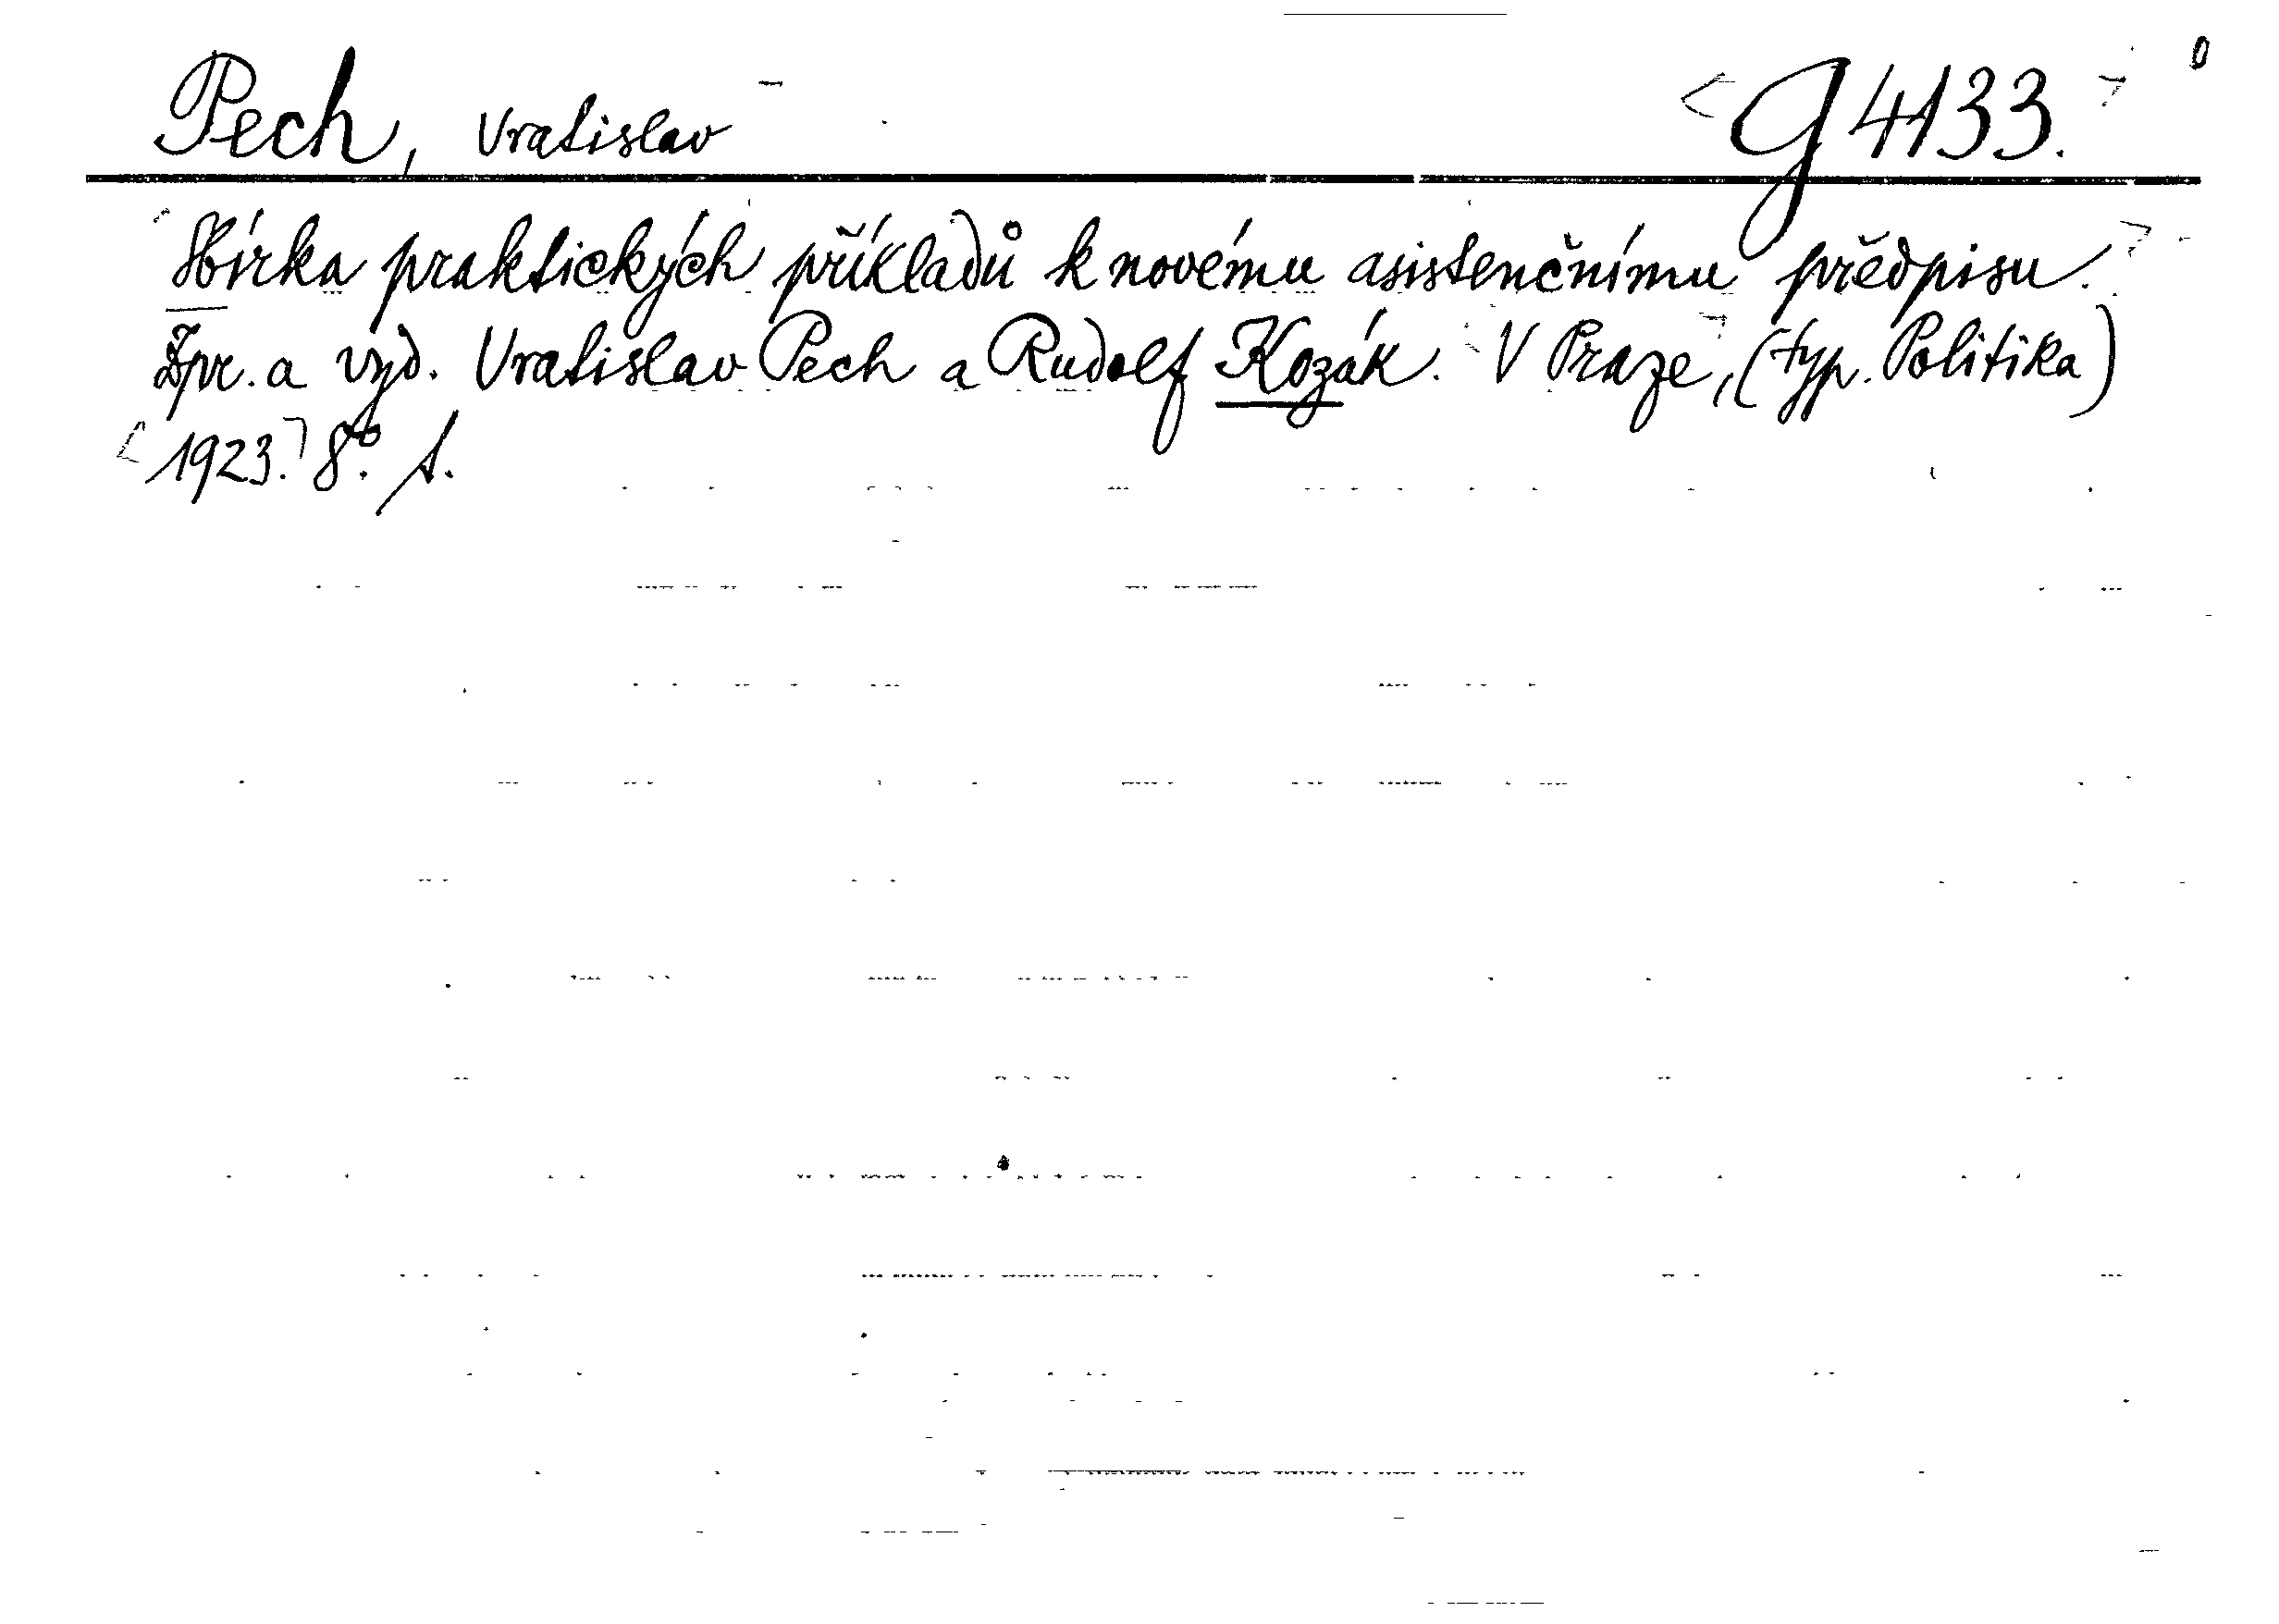 Pech, Vratislav g 4133.
Sbírka praktických příkladů k novému asistenčnímu předpisu.
Zpr. a vyd. Vratislav Pech a Rudolf Kozák. V Praze, (typ. Politika)
1923. 8°. s.